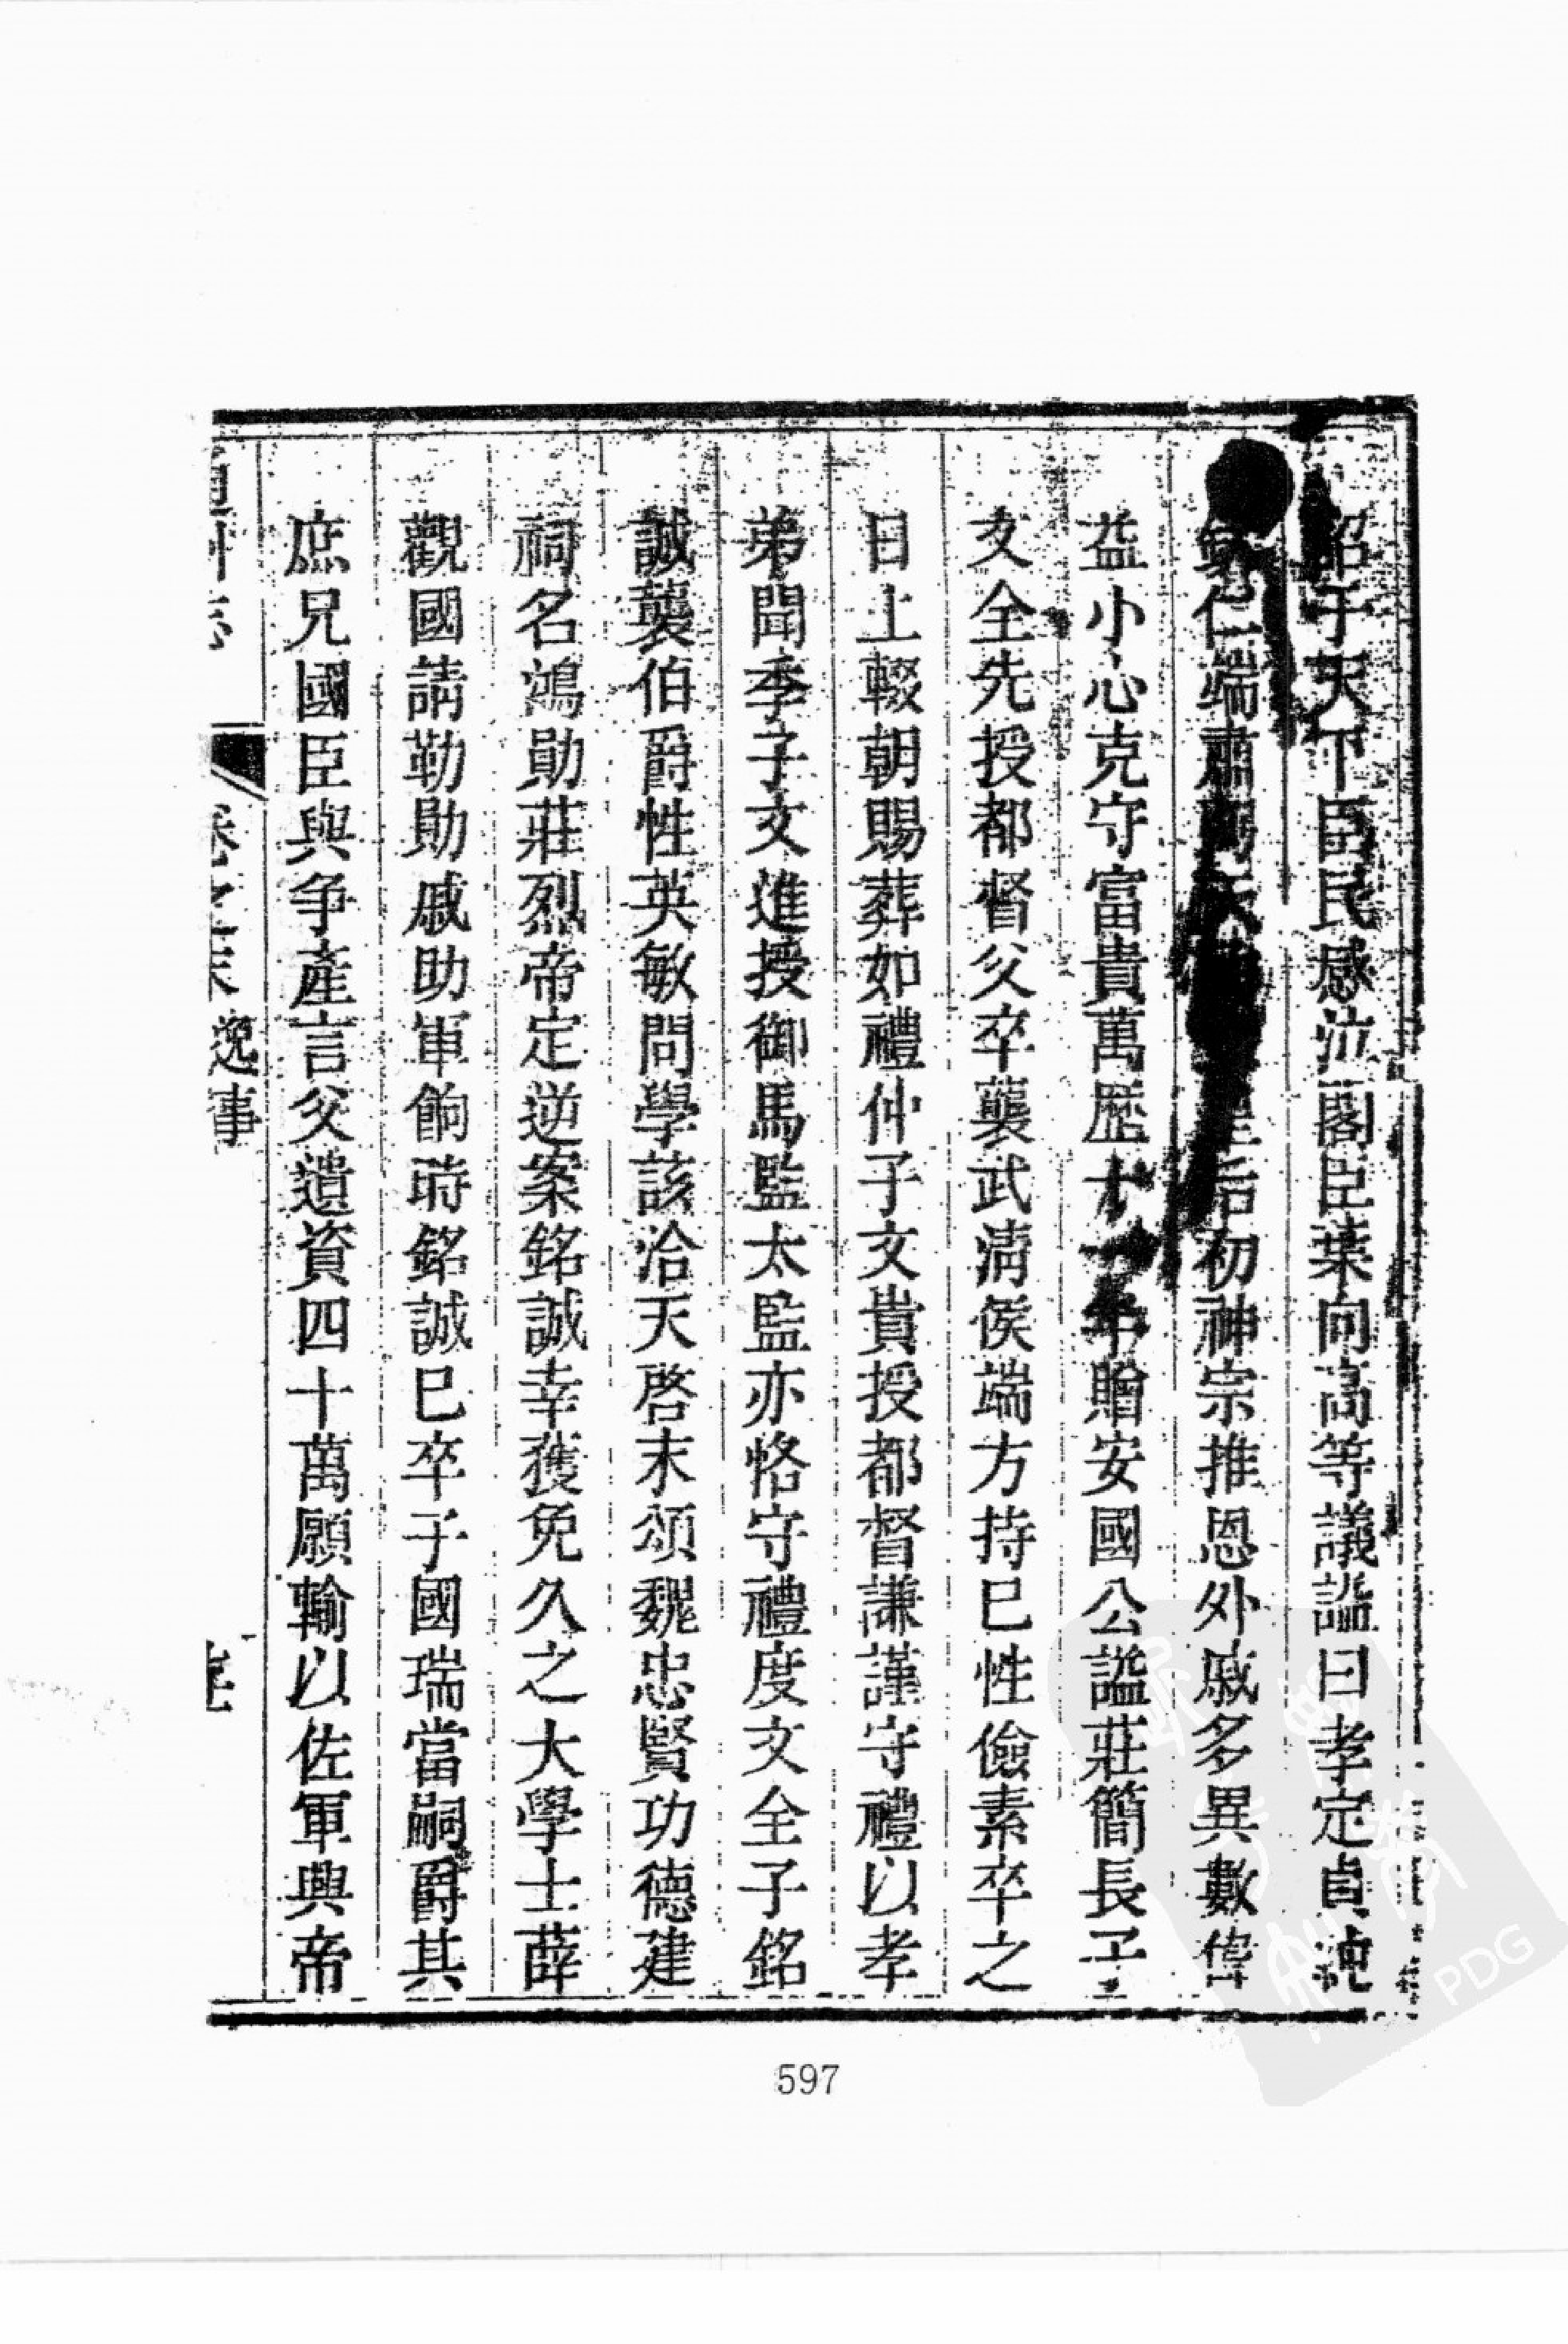 詔于天下臣民感泣閣臣葉向高等議謚曰孝定貞純
欽仁端肅弼天皇后初神宗推恩外戚多異數偉
益小心克守富貴萬歴十一年贈安國公謚莊簡長子
文全先授都督父卒襲武淸侯端方持已性儉素卒之
日上輟朝賜葬如禮仲子文貴授都督謙謹守禮以孝
弟聞季子文進授御馬監太監亦恪守禮度文全子銘
誠襲伯爵性英敏問學該洽天啓末頌魏忠賢功德建
祠名鴻勛莊烈帝定逆案銘誠幸獲免久之大學士薛
觀國請勒勛戚助軍餉時銘誠已卒子國瑞當嗣爵其
庶兄國臣與争產言父遺資四十萬願輸以佐軍興帝
逸事
597
PDG